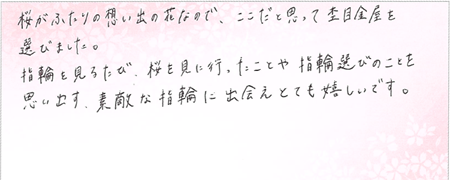 桜がふたりの想い出の花なので、ここだと思って杢目金屋を
選びました。
指輪を見るたび、桜を見に行ったことや指輪選びのことを
思い出す、素敵な指輪に出会えとても嬉しいです。